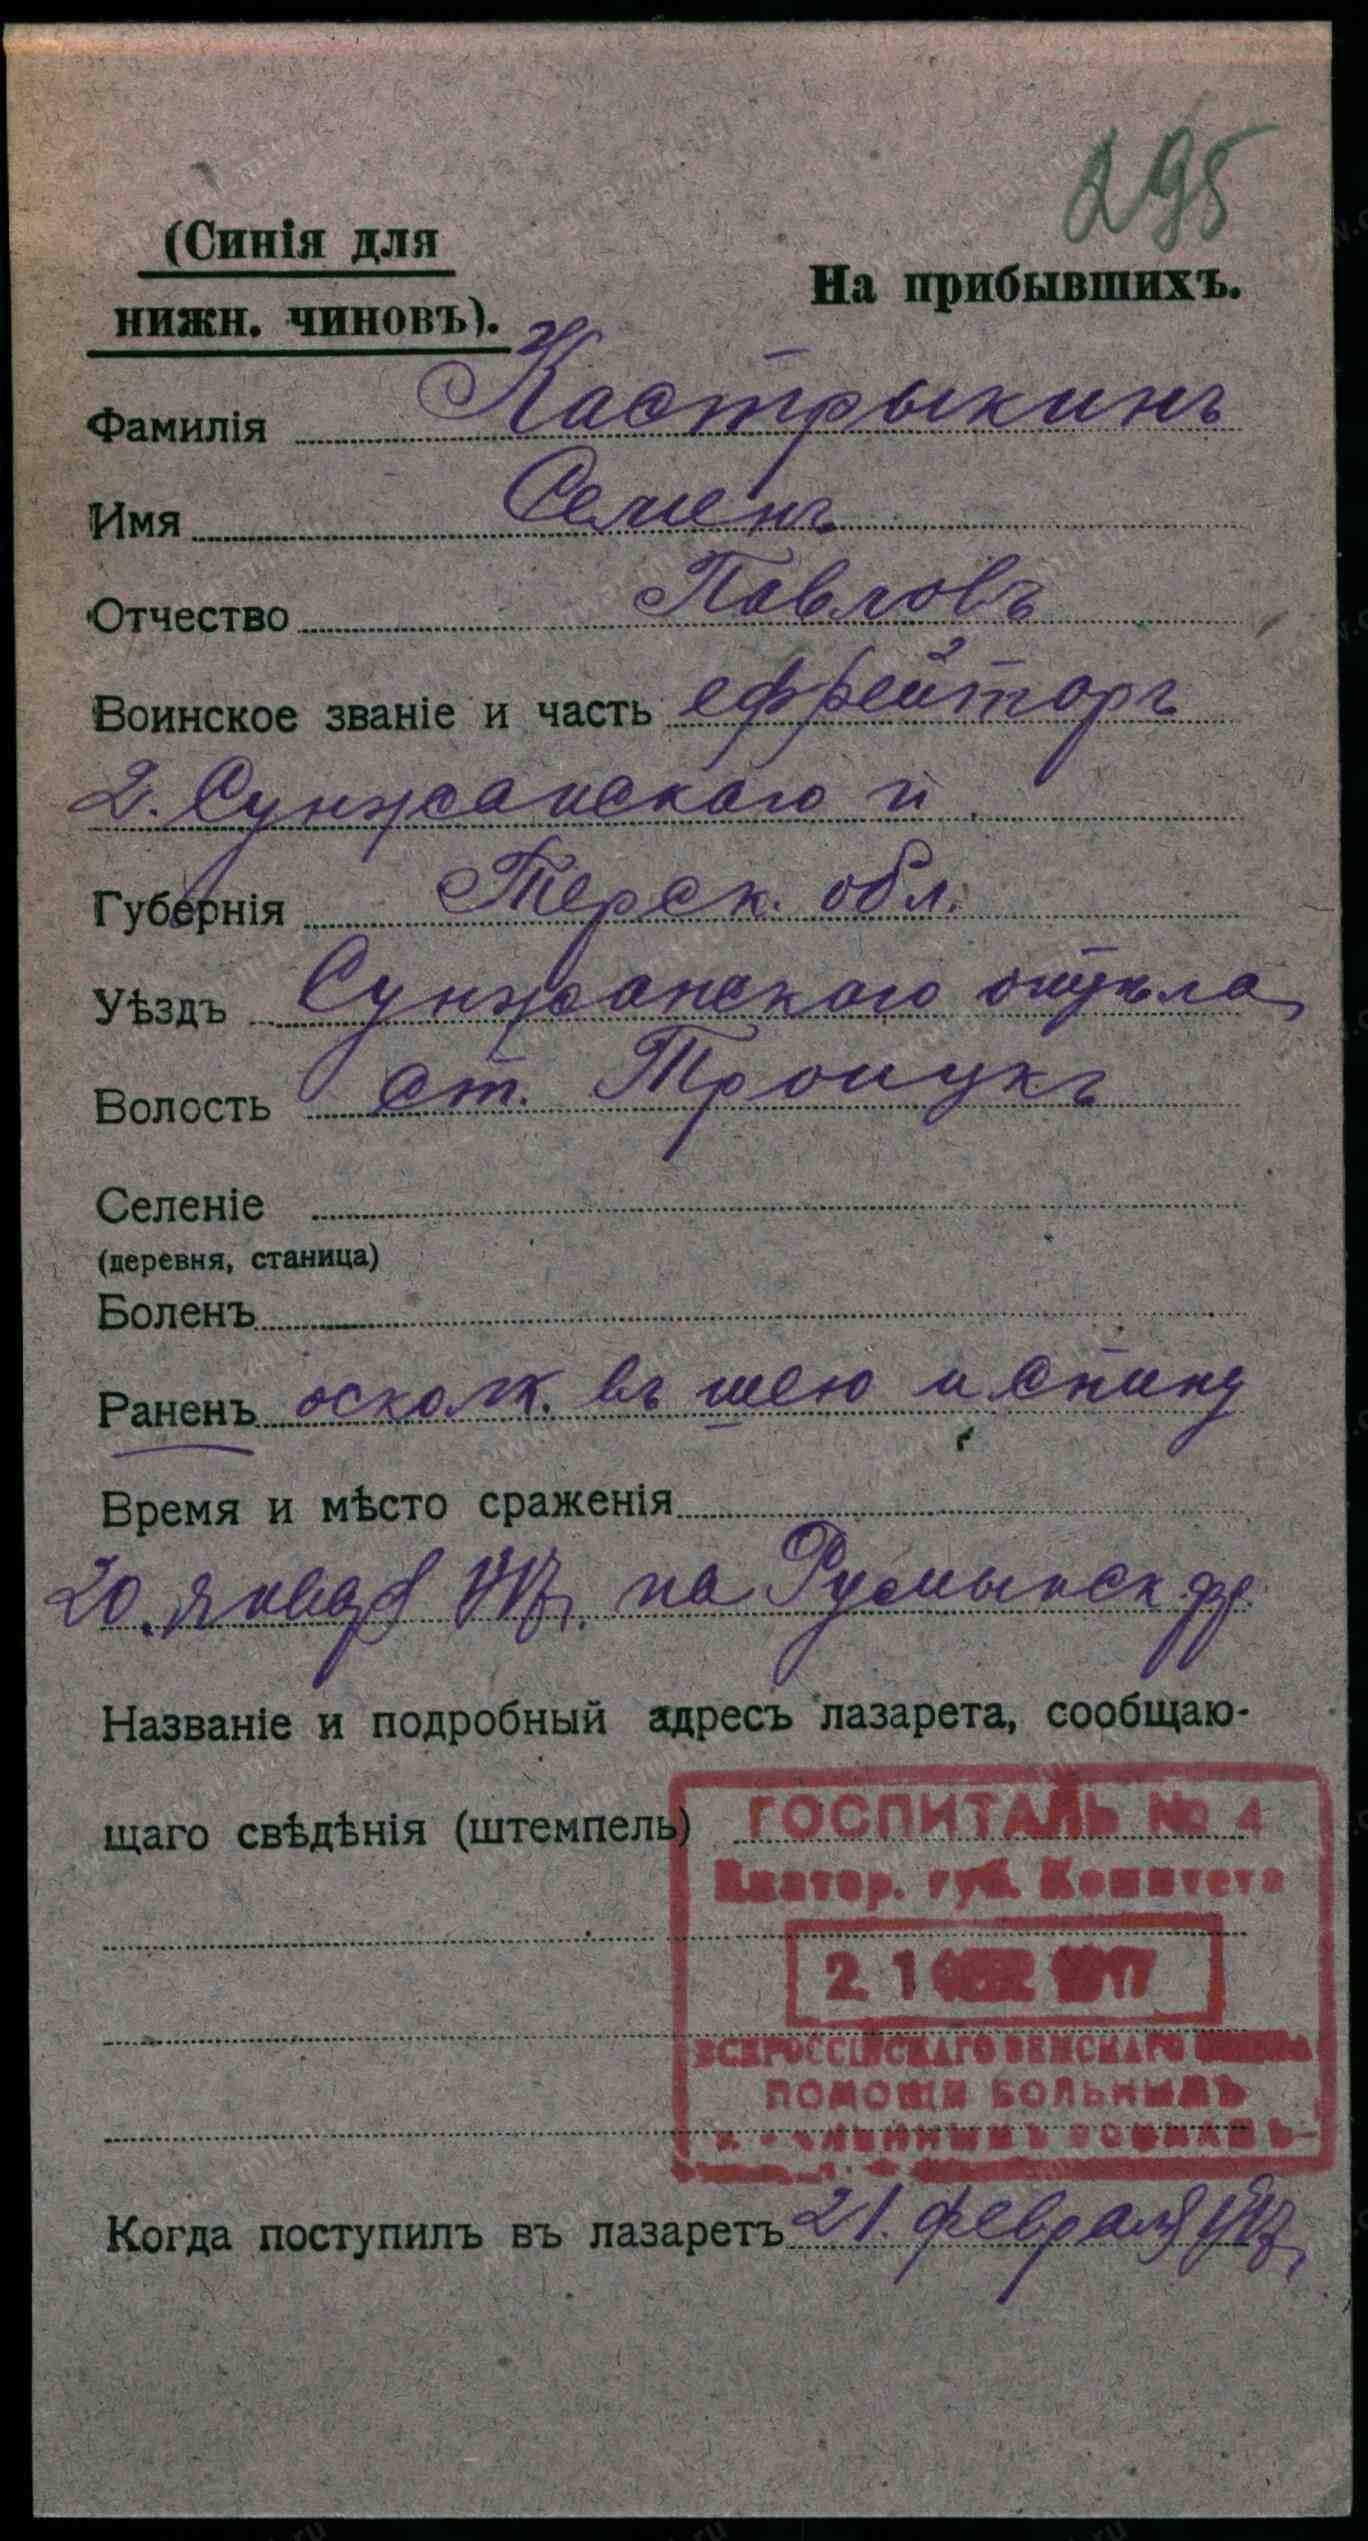 295
(Синія для
нижн. чиновъ).
На прибывшихъ.
Фамилія Кастрыкинъ
Имя Семенъ
Отчество Павловъ
Воинское званіе и часть ефрейторъ
2. Сунжанскаго п.
Губернія Терск. обл.
Уѣздъ Сунжанскаго отдѣла
Волость ст. Троицкъ
Селеніе
(деревня, станица)
Боленъ
Раненъ осколк. въ шею и спину
Время и мѣсто сраженія
20. января 1917 на Румынск. фр.
Названіе и подробный адресъ лазарета, сообщаю-
щаго свѣдѣнія (штемпель)
ГОСПИТАЛЬ № 4
Екатер. губ. Комитета
21 1917
ВСЕРОССІЙСКАГО ЗЕМСКАГО СОЮЗА
ПОМОЩИ БОЛЬНЫМЪ
Когда поступилъ въ лазаретъ 21. февраля 1917